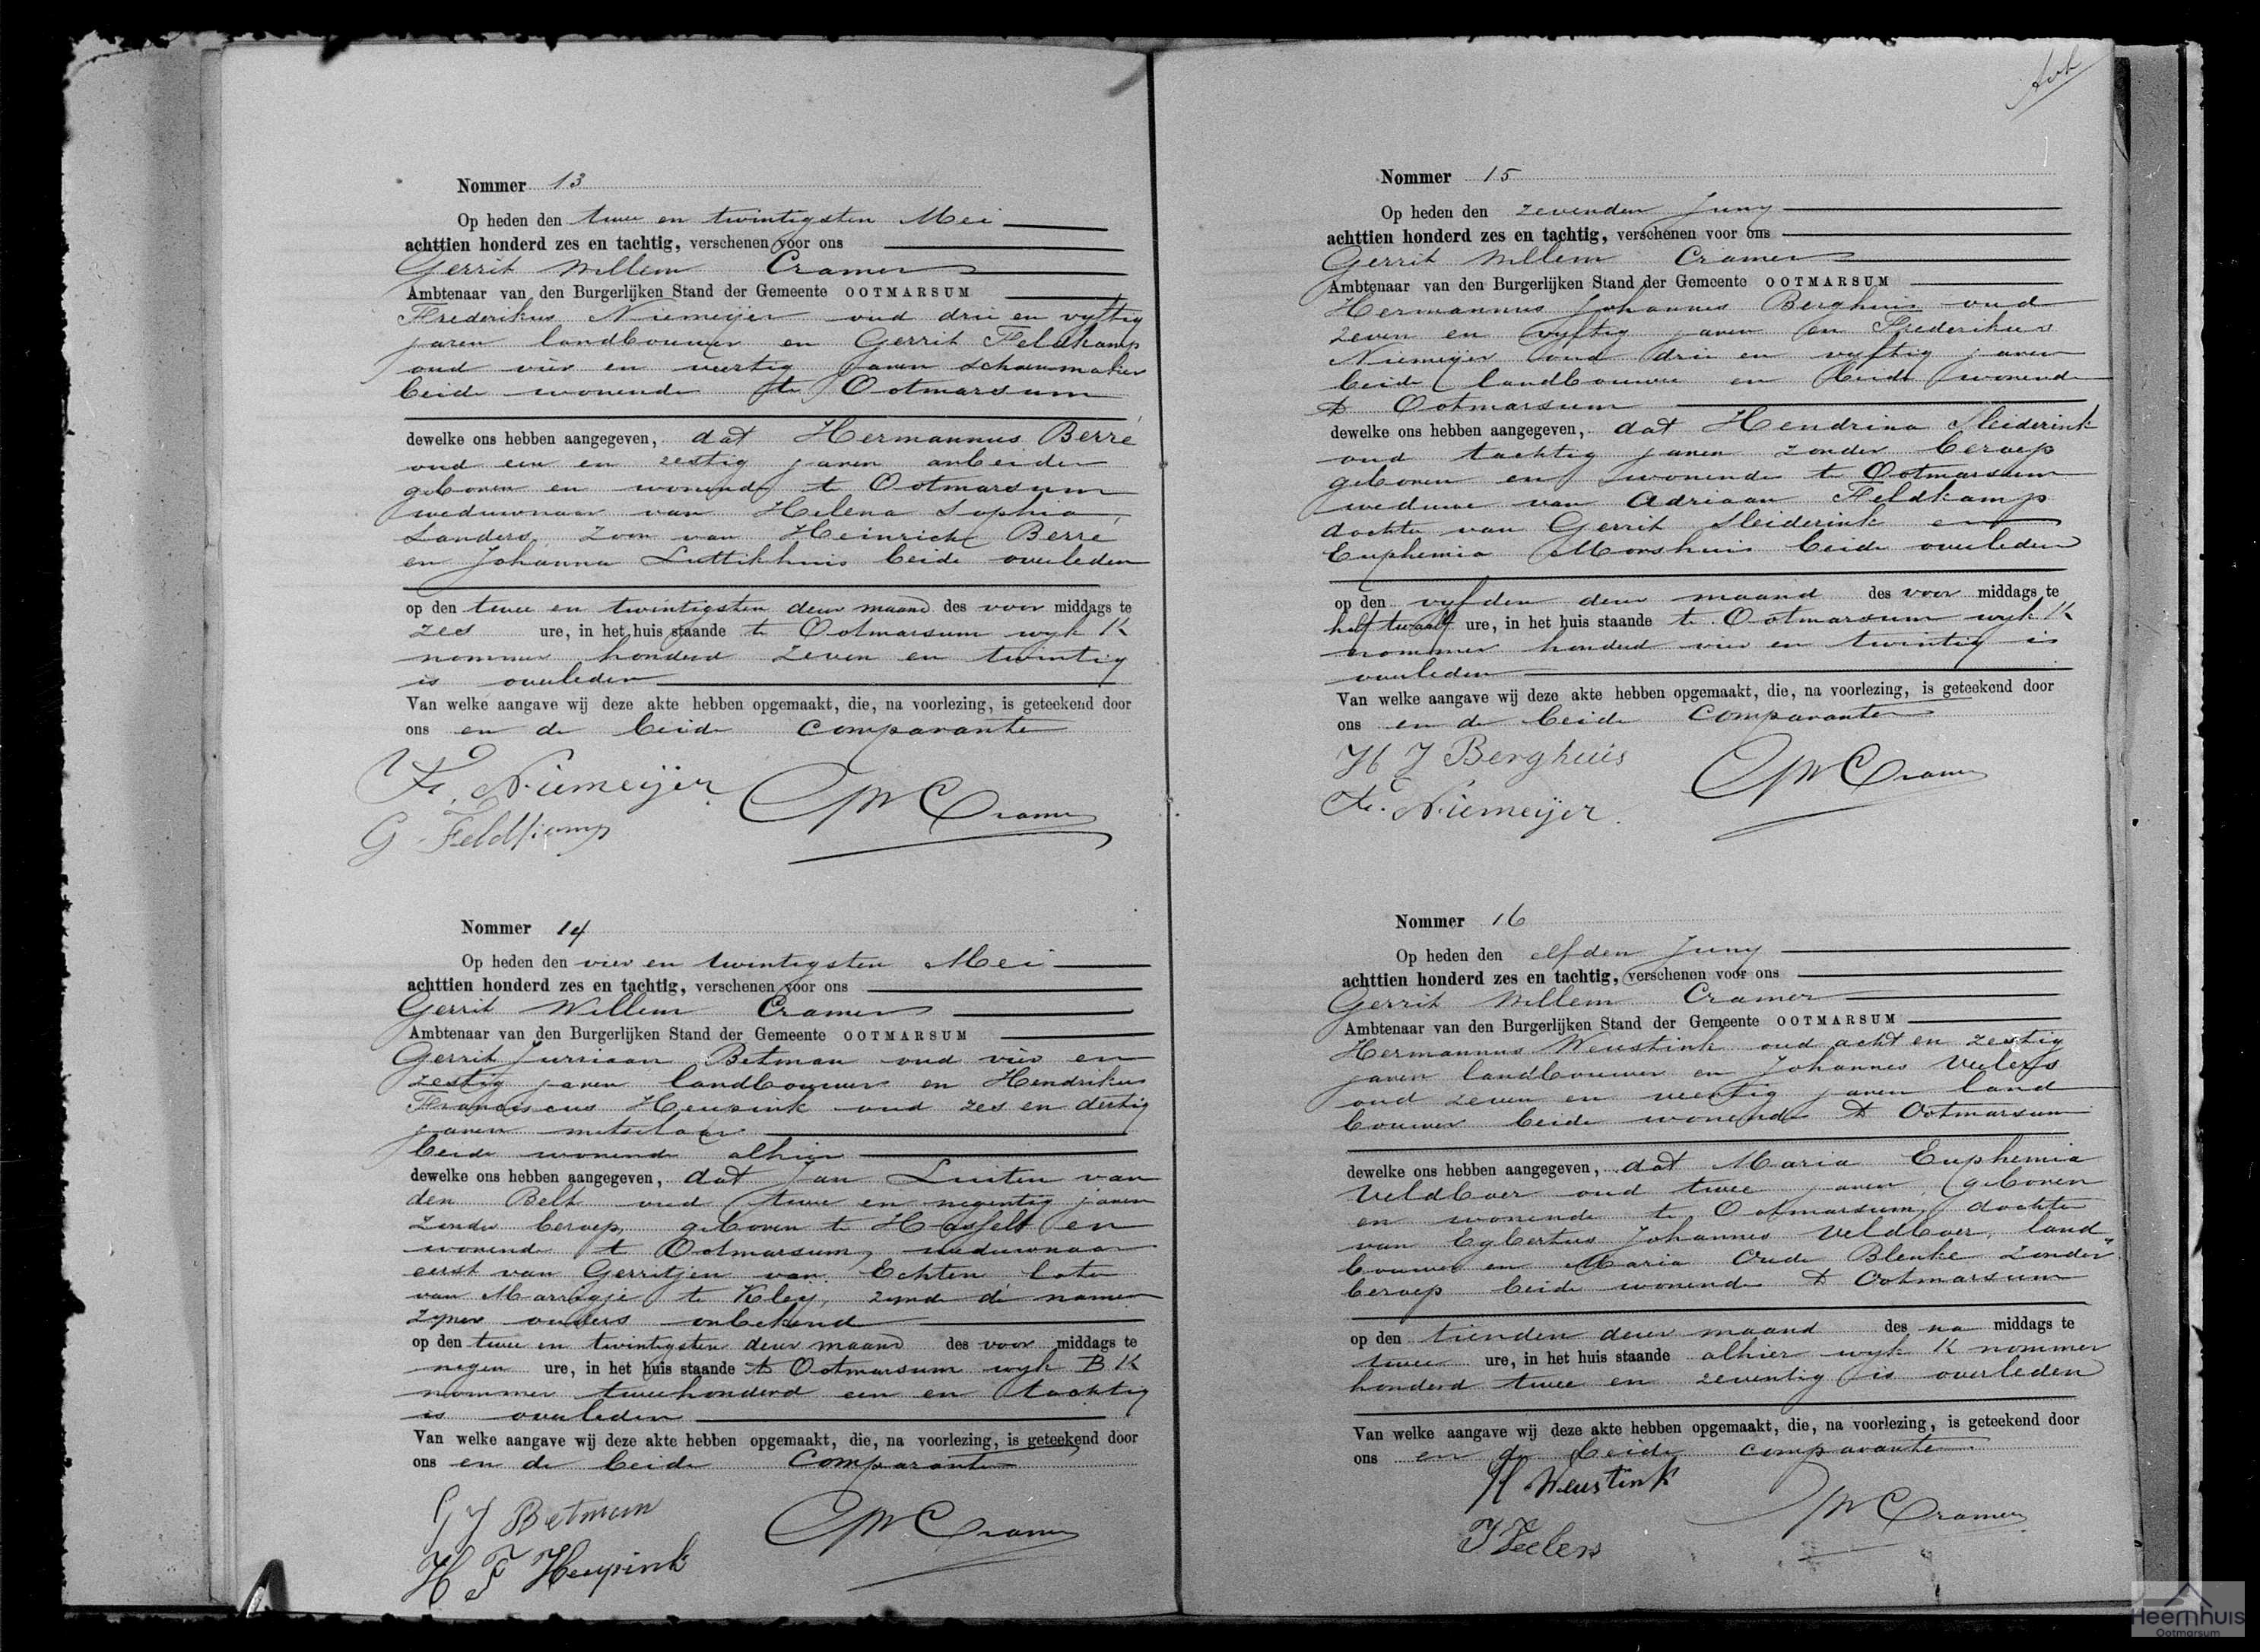 Nommer 13
Op heden den twee en twintigsten Mei
achttien honderd zes en tachtig, verschenen voor ons
Gerrit Willem Cramer
Ambtenaar van den Burgerlijken Stand der Gemeente OOTMARSUM
Frederikus Niemeijer oud drie en vyftig
jaren landbouwer en Gerrit Feldkamp
oud vier en veertig jaren schoenmaker
beide wonende te Ootmarsum
dewelke ons hebben aangegeven, dat Hermannus Berré
oud een en zestig jaren arbeider
geboren en wonende te Ootmarsum
weduwnaar van Helena Sophia
Landers, Zoon van Heinrich Berré
en Johanna Luttikhuis beide overleden
op den twee en twintigsten dezer maand des voor middags te
zes ure, in het huis staande te Ootmarsum wyk K
nommer honderd zeven en twintig
is overleden
Van welke aangave wij deze akte hebben opgemaakt, die, na voorlezing, is geteekend door
ons en de beide Comparanten
Fr. Niemeijer GW Cramer
G Feldkamp
Nommer 14
Op heden den vier en twintigsten Mei
achttien honderd zes en tachtig, verschenen voor ons
Gerrit Willem Cramer
Ambtenaar van den Burgerlijken Stand der Gemeente OOTMARSUM
Gerrit Jurriaan Betman oud vier en
zestig jaren landbouwer en Hendrikus
Franciscus Heupink oud zes en dertig
jaren metselaar
beide wonende alhier
dewelke ons hebben aangegeven, dat Jan Luiten van
den Belt oud twee en negentig jaren
zonder beroep, geboren te Hasselt en
wonende te Ootmarsum, weduwnaar
eerst van Gerritjen van Echten, later
van Marrigje te Kley, zynde de namen
zyner ouders onbekend
op den twee en twintigsten dezer maand des voor middags te
negen ure, in het huis staande te Ootmarsum wyk B K
nommer tweehonderd een en tachtig
is overleden
Van welke aangave wij deze akte hebben opgemaakt, die, na voorlezing, is geteekend door
ons en de beide Comparanten
G J Betman GW Cramer
H F Heupink
Nommer 15
Op heden den zevenden Juny
achttien honderd zes en tachtig, verschenen voor ons
Gerrit Willem Cramer
Ambtenaar van den Burgerlijken Stand der Gemeente OOTMARSUM
Hermannus Johannes Berghuis oud
zeven en vyftig jaren en Frederikus
Niemeijer oud drie en vyftig jaren
beide landbouwer en beide wonende
te Ootmarsum
dewelke ons hebben aangegeven, dat Hendrina Sleiderink
oud tachtig jaren zonder beroep
geboren en wonende te Ootmarsum
weduwe van Adriaan Feldkamp
dochter van Gerrit Sleiderink en
Euphemia Morshuis beide overleden
op den vyfden dezer maand des voor middags te
half twaalf ure, in het huis staande te Ootmarsum wyk K
nommer honderd vier en twintig is
overleden
Van welke aangave wij deze akte hebben opgemaakt, die, na voorlezing, is geteekend door
ons en de beide Comparanten
H J Berghuis GW Cramer
Fr. Niemeijer
Nommer 16
Op heden den elfden Juny
achttien honderd zes en tachtig, verschenen voor ons
Gerrit Willem Cramer
Ambtenaar van den Burgerlijken Stand der Gemeente OOTMARSUM
Hermannus Weustink oud acht en zestig
jaren landbouwer en Johannes Veelers
oud zeven en veertig jaren land
bouwer beide wonende te Ootmarsum
dewelke ons hebben aangegeven, dat Maria Euphemia
Veldboer oud twee jaren, geboren
en wonende te Ootmarsum, dochter
van Egbertus Johannes Veldboer, land-
bouwer en Maria Oude Blenke zonder
beroep beide wonende te Ootmarsum
op den tienden dezer maand des na middags te
twee ure, in het huis staande alhier wyk K nommer
honderd twee en zeventig is overleden
Van welke aangave wij deze akte hebben opgemaakt, die, na voorlezing, is geteekend door
ons en de beide comparanten
H Weustink GW Cramer
J Veelers
Heemhuis
Ootmarsum